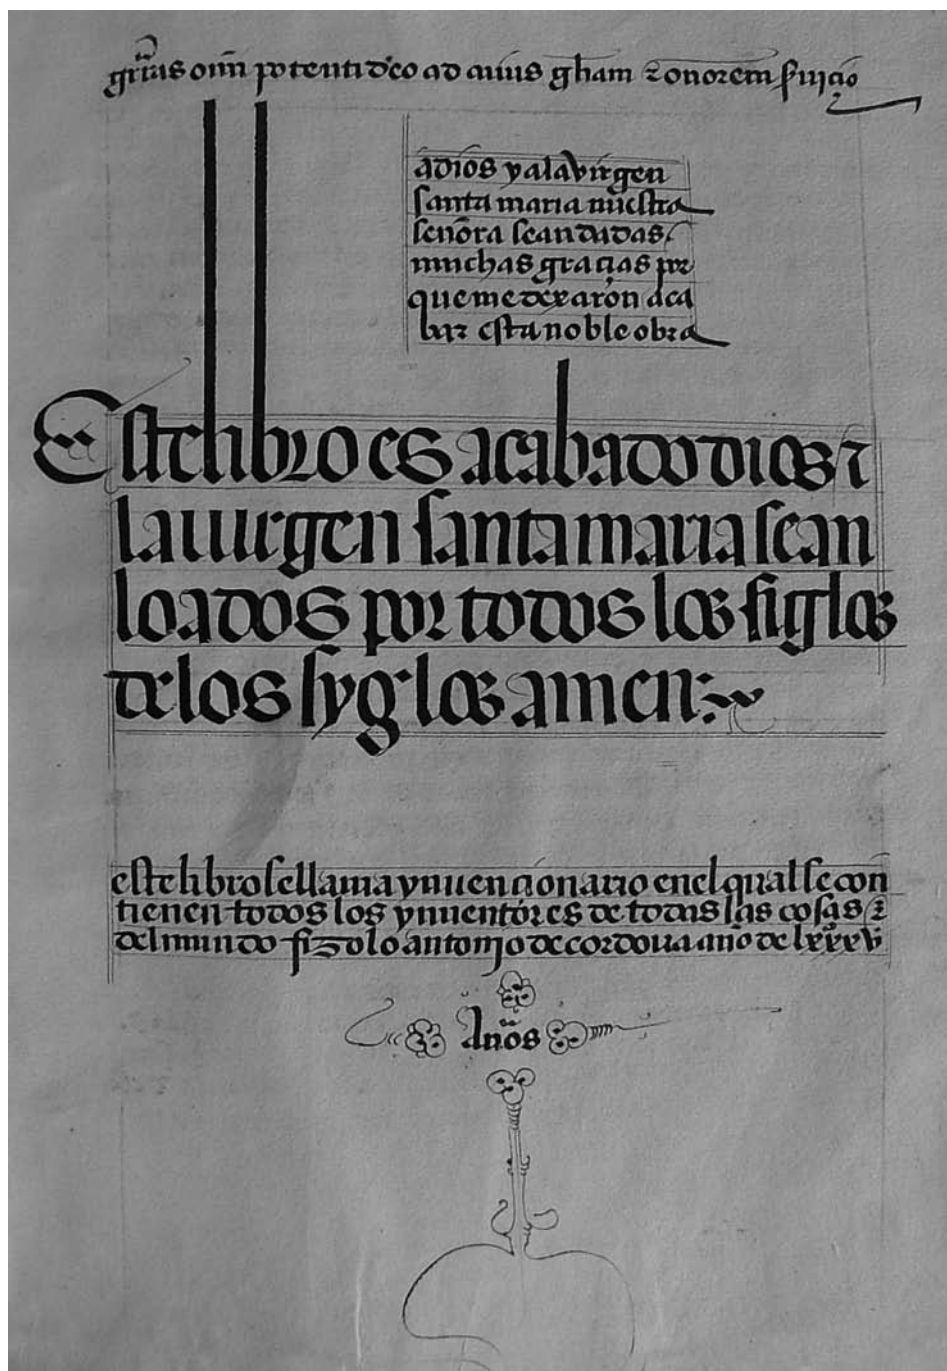 gr̃as om̃i potenti deo ad cuius gl̃iam ⁊ onorem
a dios y ala virgen
santa maria nuestra
señora sean dadas
muchas gracias por
que me dexarõn aca
bar esta noble obra
Este libro es acabado dios ⁊
la uirgen santa maria sean
loados por todos los siglos
de los syglos amen:
este libro se llama ynuencionario enel qual se con
tienen todos los ynuentores de todas las cosas
del mundo fizolo antonio de cordoua año de lxxxv
Años